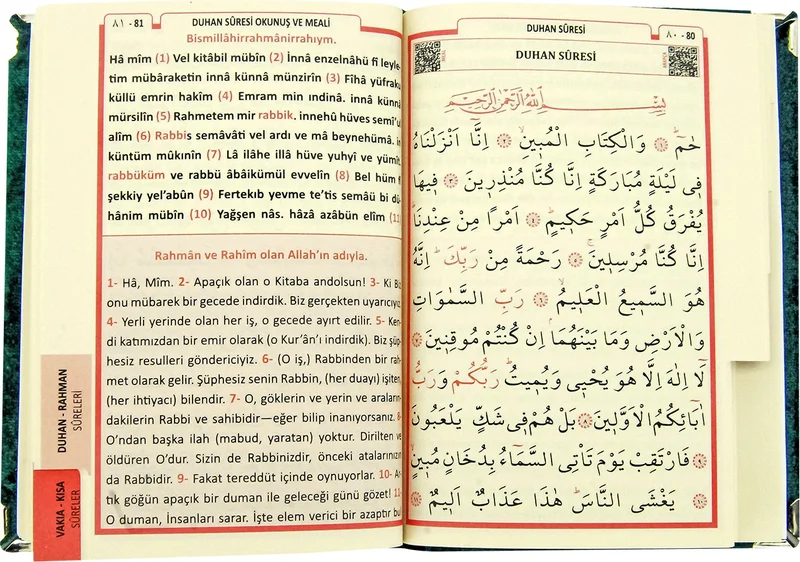 ٨١ - 81
DUHAN SÛRESİ OKUNUŞ VE MEALİ
Bismillâhirrahmânirrahıym.
Hâ mîm (1) Vel kitâbil mübîn (2) İnnâ enzelnâhü fî leyle-
tim mübâraketin innâ künnâ münzirîn (3) Fîhâ yüfraku
küllü emrin hakîm (4) Emram min ındinâ. innâ künnâ
mürsilîn (5) Rahmetem mir rabbik. innehû hüves semî'u
alîm (6) Rabbis semâvâti vel ardı ve mâ beynehümâ. in
küntüm mûkınîn (7) Lâ ilâhe illâ hüve yuhyî ve yümît.
rabbüküm ve rabbü âbâikümül evvelîn (8) Bel hüm fî
şekkiy yel'abûn (9) Fertekıb yevme te'tis semâü bi dü-
hânim mübîn (10) Yağşen nâs. hâzâ azâbün elîm (11
Rahmân ve Rahîm olan Allah'ın adıyla.
1- Hâ, Mîm. 2- Apaçık olan o Kitaba andolsun! 3- Ki Biz
onu mübarek bir gecede indirdik. Biz gerçekten uyarıcıyız.
4- Yerli yerinde olan her iş, o gecede ayırt edilir. 5- Ken-
di katımızdan bir emir olarak (o Kur'ân'ı indirdik). Biz şüp-
hesiz resulleri göndericiyiz. 6- (O iş,) Rabbinden bir rah-
met olarak gelir. Şüphesiz senin Rabbin, (her duayı) işiten,
(her ihtiyacı) bilendir. 7- O, göklerin ve yerin ve araların-
dakilerin Rabbi ve sahibidir—eğer bilip inanıyorsanız. 8-
O'ndan başka ilah (mabud, yaratan) yoktur. Dirilten ve
öldüren O'dur. Sizin de Rabbinizdir, önceki atalarınızın
da Rabbidir. 9- Fakat tereddüt içinde oynuyorlar. 10- Ar-
tık göğün apaçık bir duman ile geleceği günü gözet! 11-
O duman, İnsanları sarar. İşte elem verici bir azaptır bu!
DUHAN - RAHMAN
SÛRELERİ
VAKIA - KISA
SÛRELER
DUHAN SÛRESİ
٨٠ - 80
DUHAN SÛRESİ
بِسْمِ اللّٰهِ الرَّحْمٰنِ الرَّح۪يمِ
حٰمٓ ﴿١﴾ وَالْكِتَابِ الْمُب۪ينِ ﴿٢﴾ اِنَّٓا اَنْزَلْنَاهُ
ف۪ي لَيْلَةٍ مُبَارَكَةٍ اِنَّا كُنَّا مُنْذِر۪ينَ ﴿٣﴾ ف۪يهَا
يُفْرَقُ كُلُّ اَمْرٍ حَك۪يمٍ ﴿٤﴾ اَمْرًا مِنْ عِنْدِنَا
اِنَّا كُنَّا مُرْسِل۪ينَ ﴿٥﴾ رَحْمَةً مِنْ رَبِّكَ اِنَّهُ
هُوَ السَّم۪يعُ الْعَل۪يمُ ﴿٦﴾ رَبِّ السَّمٰوَاتِ
وَالْاَرْضِ وَمَا بَيْنَهُمَا اِنْ كُنْتُمْ مُوقِن۪ينَ ﴿٧﴾
لَٓا اِلٰهَ اِلَّا هُوَ يُحْي۪ي وَيُم۪يتُ رَبُّكُمْ وَرَبُّ
اٰبَٓائِكُمُ الْاَوَّل۪ينَ ﴿٨﴾ بَلْ هُمْ ف۪ي شَكٍّ يَلْعَبُونَ
﴿٩﴾ فَارْتَقِبْ يَوْمَ تَأْتِي السَّمَٓاءُ بِدُخَانٍ مُب۪ينٍ
﴿١٠﴾ يَغْشَى النَّاسَ هٰذَا عَذَابٌ اَل۪يمٌ ﴿١١﴾